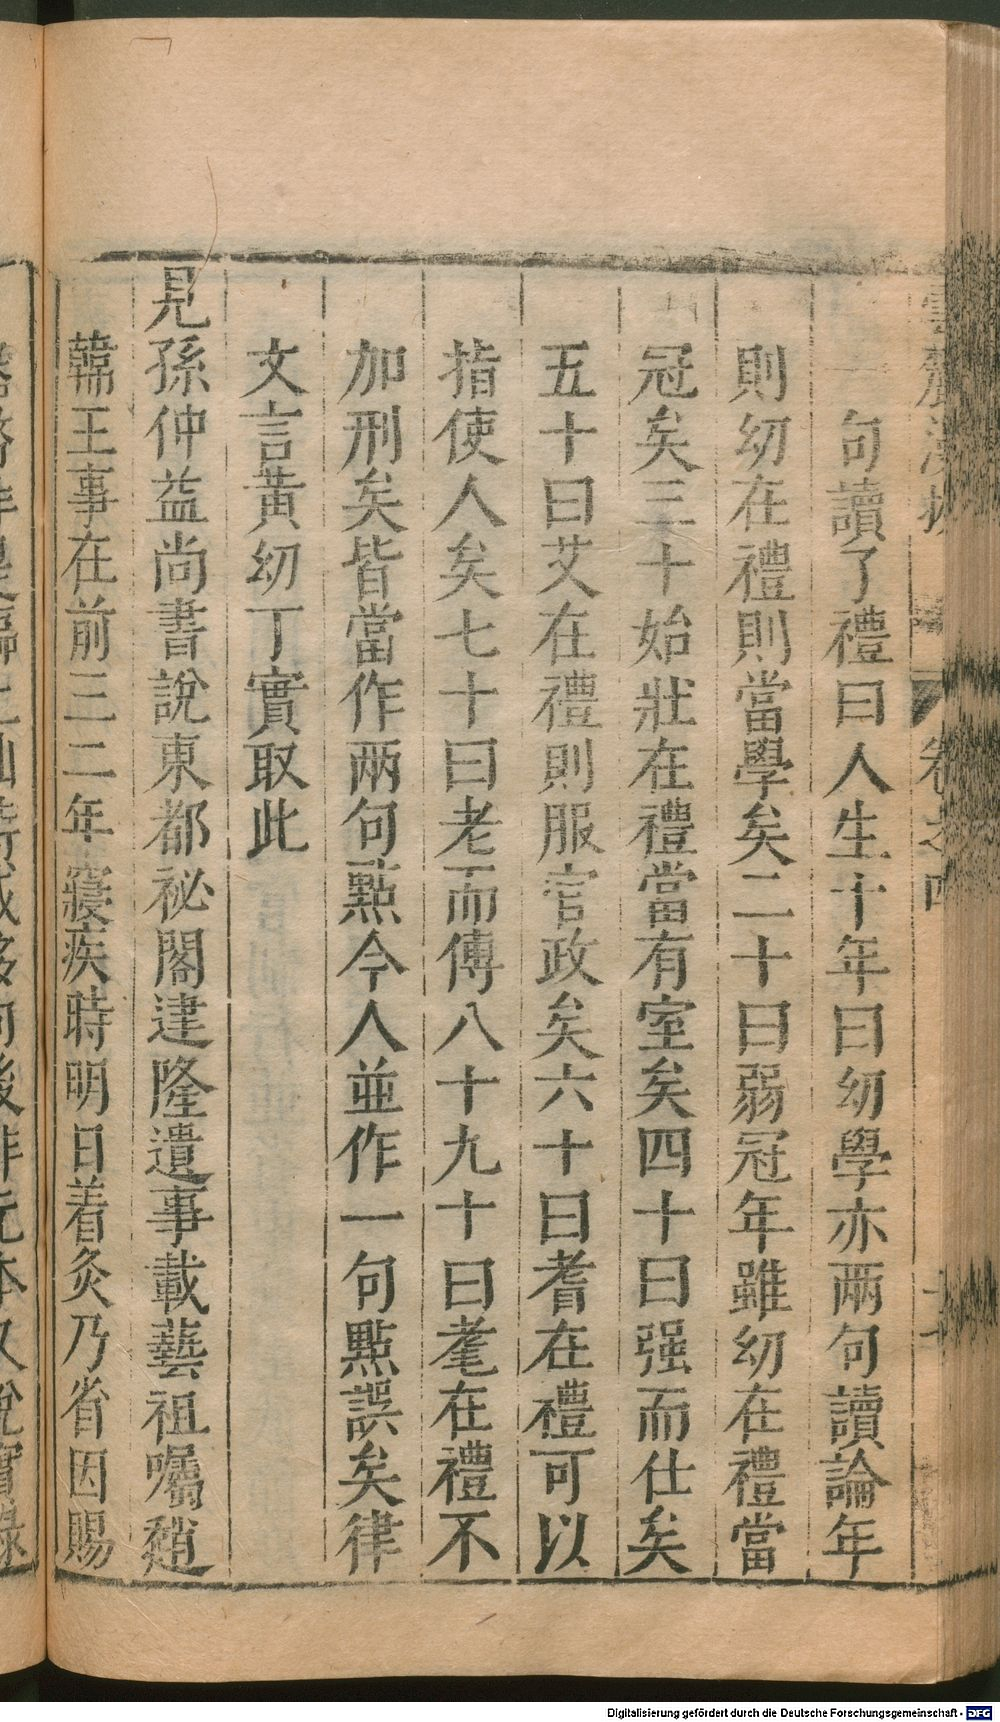 雲麓漫抄 卷之四
一句讀了禮曰人生十年曰幼學亦兩句讀論年
則幼在禮則當學矣二十曰弱冠年雖幼在禮當
冠矣三十始壯在禮當有室矣四十曰强而仕矣
五十曰艾在禮則服官政矣六十曰耆在禮可以
指使人矣七十曰老而傳八十九十曰耄在禮不
加刑矣皆當作兩句點今人並作一句點誤矣律
文言黃幼丁實取此
見孫仲益尚書說東都祕閣建隆遺事載藝祖囑趙
韓王事在前三二年寢疾時明日着灸乃省因賜
Digitalisierung gefördert durch die Deutsche Forschungsgemeinschaft - DFG